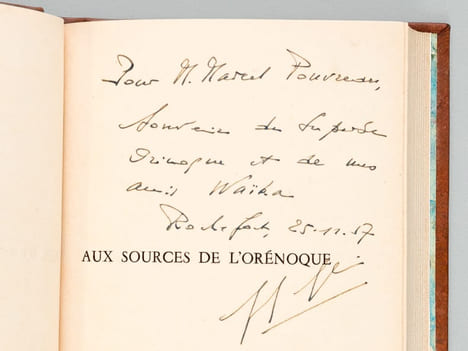 Pour M. Marcel Pouvreau,
Souvenir du superbe
Orénoque et de mes
amis Waïka
Rochefort, 25.11.57
AUX SOURCES DE L'ORÉNOQUE